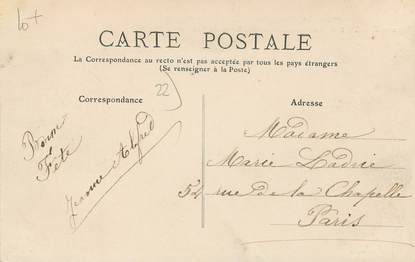 CARTE POSTALE
La Correspondance au recto n'est pas acceptée par tous les pays étrangers
(Se renseigner à la Poste)
Correspondance
22
Adresse
Bonne
Fête
Jeanne Alfred
Madame
Marie Ladrie
54 rue de la Chapelle
Paris